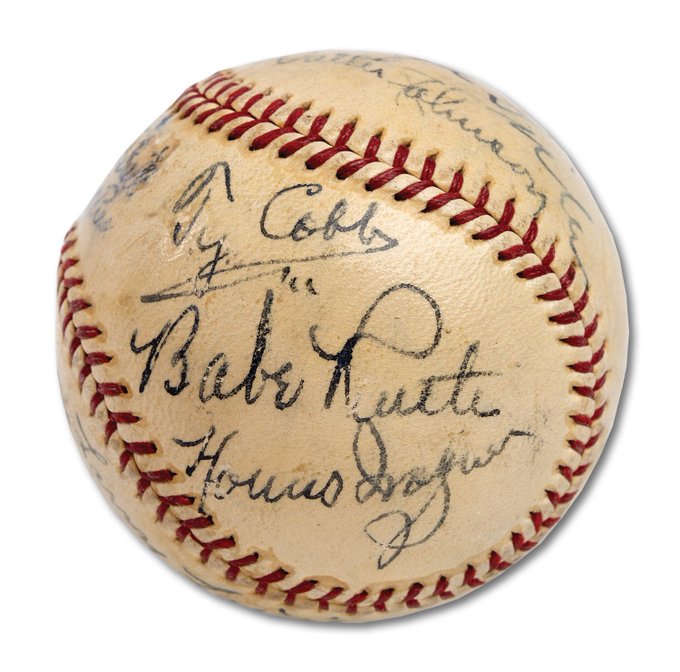 Walter Johnson
Ty Cobb
"Babe Ruth
Honus Wagner